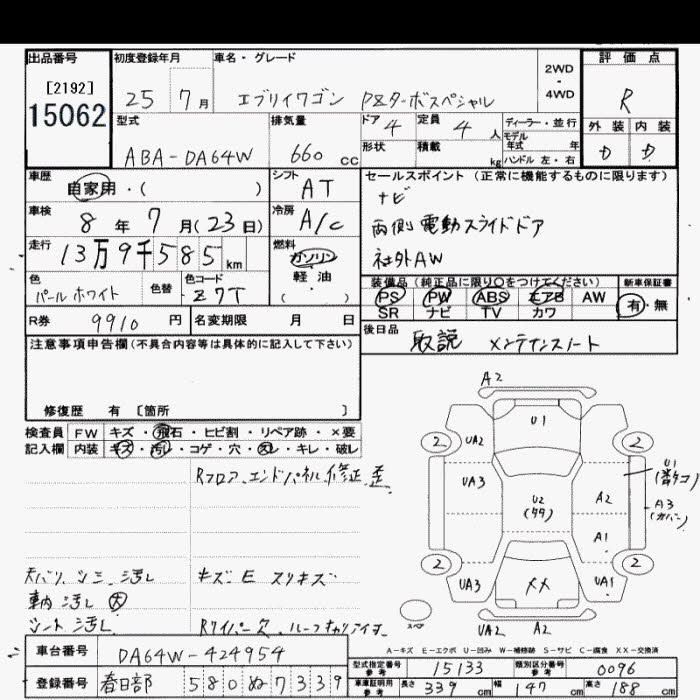 出品番号
[2192]
15062
初度登録年月
25 7月
車名・グレード
エブリイワゴン PZターボスペシャル
2WD
-
4WD
評価点
R
外装 内装
D D
型式
ABA-DA64W
排気量
660 cc
ドア 4
定員 4 人
形状
積載 kg
ディーラー・並行
モデル年式 年
ハンドル 左・右
車歴
自家用・( )
シフト AT
車検
8年 7月(23日)
冷房 A/C
走行
13万9千585 km
燃料
ガソリン
軽・油
( )
色
パールホワイト
色替
色コード
Z7T
R券 9910 円
名変期限 月 日
セールスポイント(正常に機能するものに限ります)
ナビ
両側電動スライドドア
社外AW
装備品(純正品に限り○をつけてください)
PS PW ABS エアB AW
SR ナビ TV カワ
新車保証書
有・無
後日品
取説 メンテナンスノート
注意事項申告欄(不具合内容等は具体的に記入して下さい)
修復歴 有 [箇所 ]
検査員 FW キズ・飛石・ヒビ割・リペア跡・×要
記入欄 内装 キズ・汚レ・コゲ・穴・スレ・キレ・破レ
Rフロア、エンドパネル修正歪
天バリ シミ 汚レ
キズ E スリキズ
車内 汚レ 大
シート 汚レ
Rワイパー欠
A2
U1
2 UA2 2
UA3
U2
(タタ)
A2
U1
A3
(カバー)
A1
2 UA3 XX UA1 2
スペア
UA2 A2
A-キズ E-エクボ U-凹み W-補修跡 S-サビ C-腐食 XX-交換済
車台番号
DA64W-424954
登録番号
春日部 580 ぬ 7339
型式指定番号 参考
15133
類別区分番号 参考
0096
車庫証明用 参考
長さ 339 cm 幅 147 cm 高さ 188 cm